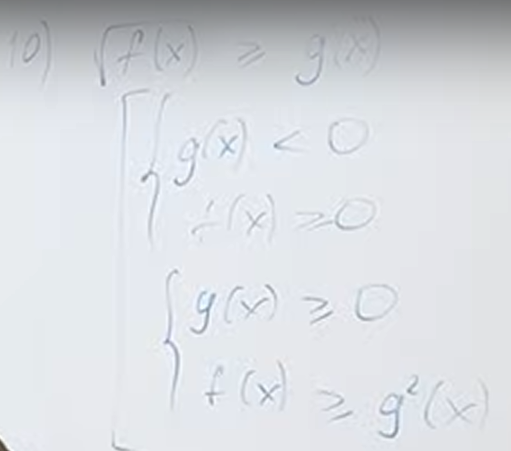 10) √f(x) ≥ g(x)
g(x) < 0
f(x) ≥ 0
g(x) ≥ 0
f(x) ≥ g²(x)